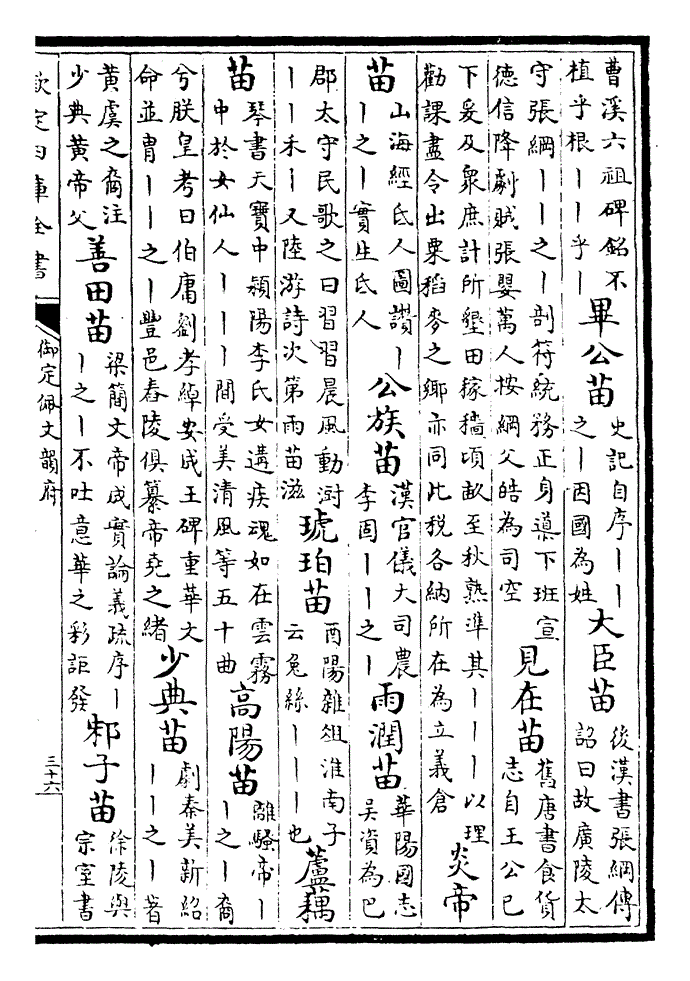 曹溪六祖碑銘不
植乎根丨丨乎丨
畢公苗
史記自序丨丨
之丨因國為姓
大臣苗
後漢書張綱傳
詔曰故廣陵太
守張綱丨丨之丨剖符統務正身導下班宣
德信降劇賊張嬰萬人按綱父皓為司空
見在苗
舊唐書食貨
志自王公已
下爰及衆庶計所墾田稼穡頃畝至秋熟準其丨丨丨以理
勸課盡令出粟稻麥之鄉亦同此税各納所在為立義倉
炎帝
苗
山海經氐人圖讃丨
丨之丨實生氐人
公族苗
漢官儀大司農
李固丨丨之丨
雨潤苗
華陽國志
吳資為巴
郡太守民歌之曰習習晨風動澍
丨丨禾丨又陸游詩次第雨苗滋
琥珀苗
酉陽雜俎淮南子
云兔絲丨丨丨也
蘆藕
苗
琴書天寶中潁陽李氏女遘疾魂如在雲霧
中於女仙人丨丨丨間受美清風等五十曲
高陽苗
離騷帝丨
丨之丨裔
兮朕皇考曰伯庸劉孝綽安成王碑重華文
命並胄丨丨之丨豐邑舂陵俱纂帝堯之緒
少典苗
劇秦美新紹
丨丨之丨著
黃虞之裔注
少典黃帝父
善田苗
梁簡文帝成實論義疏序丨
丨之丨不吐意華之彩詎發
邾子苗
徐陵與
宗室書
欽定四庫全書
御定佩文韻府
三十六